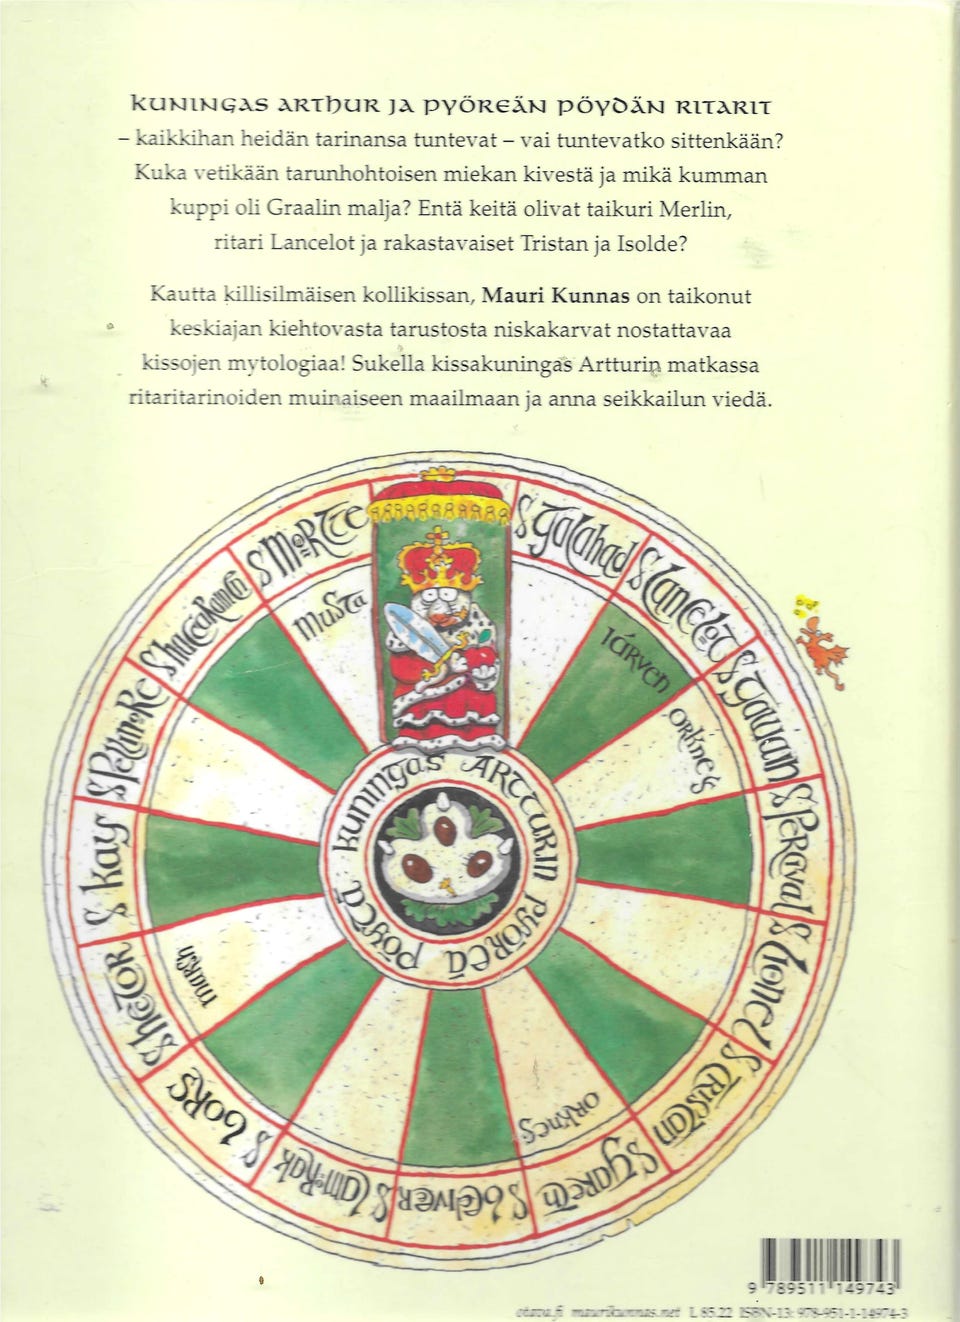 KUNINGAS ARTHUR JA PYÖREÄN PÖYDÄN RITARIT
– kaikkihan heidän tarinansa tuntevat – vai tuntevatko sittenkään?
Kuka vetikään tarunhohtoisen miekan kivestä ja mikä kumman
kuppi oli Graalin malja? Entä keitä olivat taikuri Merlin,
ritari Lancelot ja rakastavaiset Tristan ja Isolde?
Kautta killisilmäisen kollikissan, Mauri Kunnas on taikonut
keskiajan kiehtovasta tarustosta niskakarvat nostattavaa
kissojen mytologiaa! Sukella kissakuningas Artturin matkassa
ritaritarinoiden muinaiseen maailmaan ja anna seikkailun viedä.
S Galahad
S Lancelot
JÄRVEN
S Gawain
ORKNES
S Percival
S Lionel
S Tristan
S Gareth
ORKNES
S Bedwer
S Lamorak
S Bors
S Hector
MARSH
S Kay
S Pellinore
S MORTTE
MUSTA
KUNINGAS ARTTURIN PYÖREÄ PÖYTÄ
9 789511 149743
otava.fi maurikunnas.net L 85.22 ISBN-13: 978-951-1-14974-3